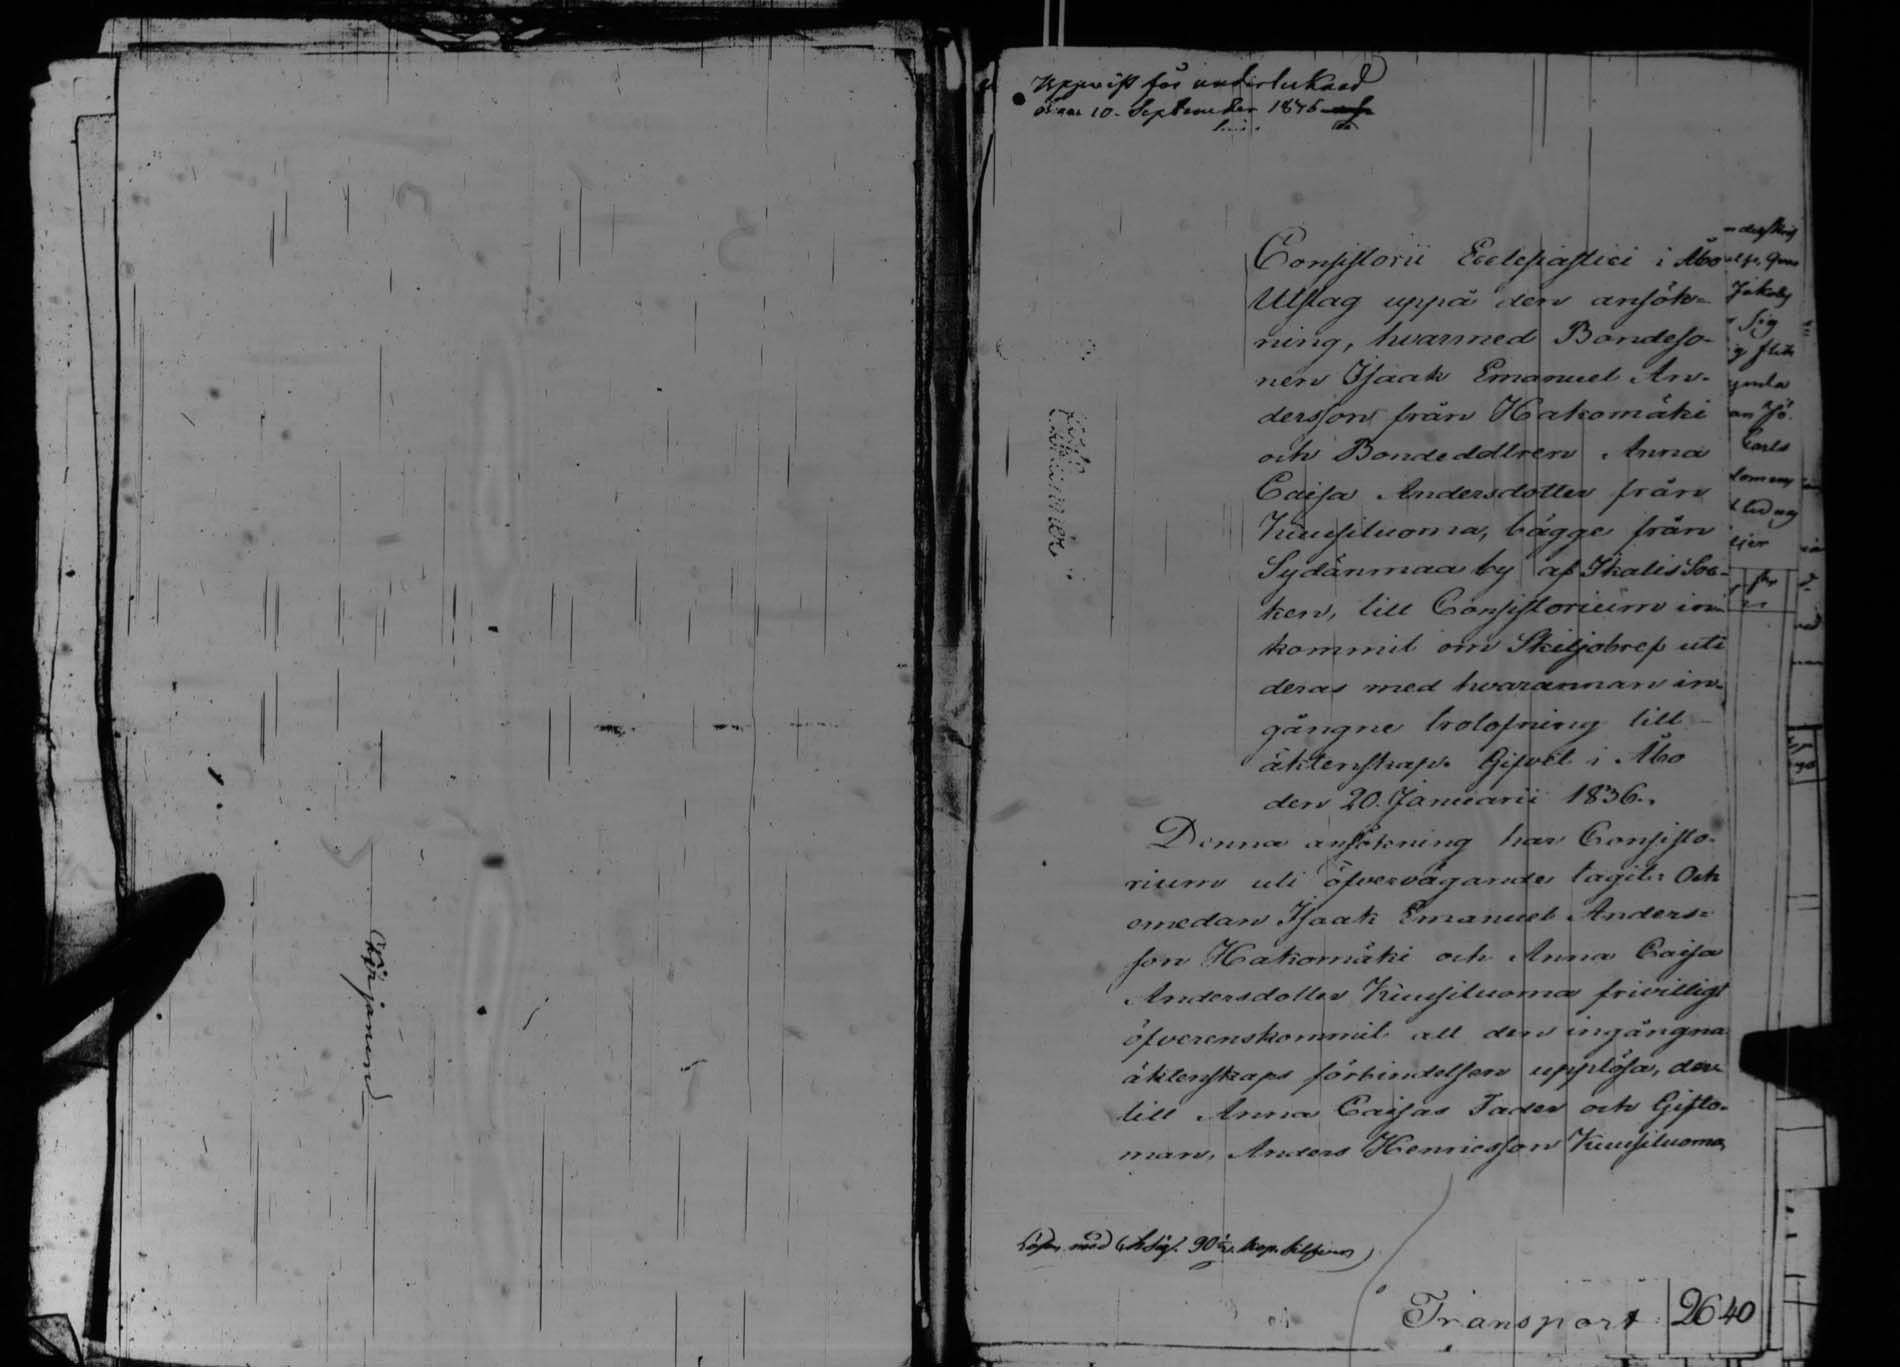 Kärjanen
Uppvist för undertecknad
den 10. September 1846
Consistorii Ecclesiastici i Åbo
Utslag uppå den ansök-
ning, hvarmed Bondeso-
nen Isaak Emanuel An-
dersson från Hakomäki
och Bondedottren Anna
Caisa Andersdotter från
Kuusiluoma, bägge från
Sydänmaa by af Ikalis Soc-
ken, till Consistorium in-
kommit om Skiljobref uti
deras med hvarannan in-
gångne trolofning till
äktenskap. Gifvet i Åbo
den 20. Januarii 1836.
Denna ansökning har Consisto-
rium uti öfvervägande tagit: Och
emedan Isaak Emanuel Anders-
son Hakomäki och Anna Caisa
Andersdotter Kuusiluoma frivilligt
öfverenskommit att den ingångna
äktenskaps förbindelsen upplösa, der
till Anna Caisas Fader och Gifto-
man, Anders Henricsson Kuusiluoma
Carls
Lösen med 90 kop. Silfver
Transport 26 40